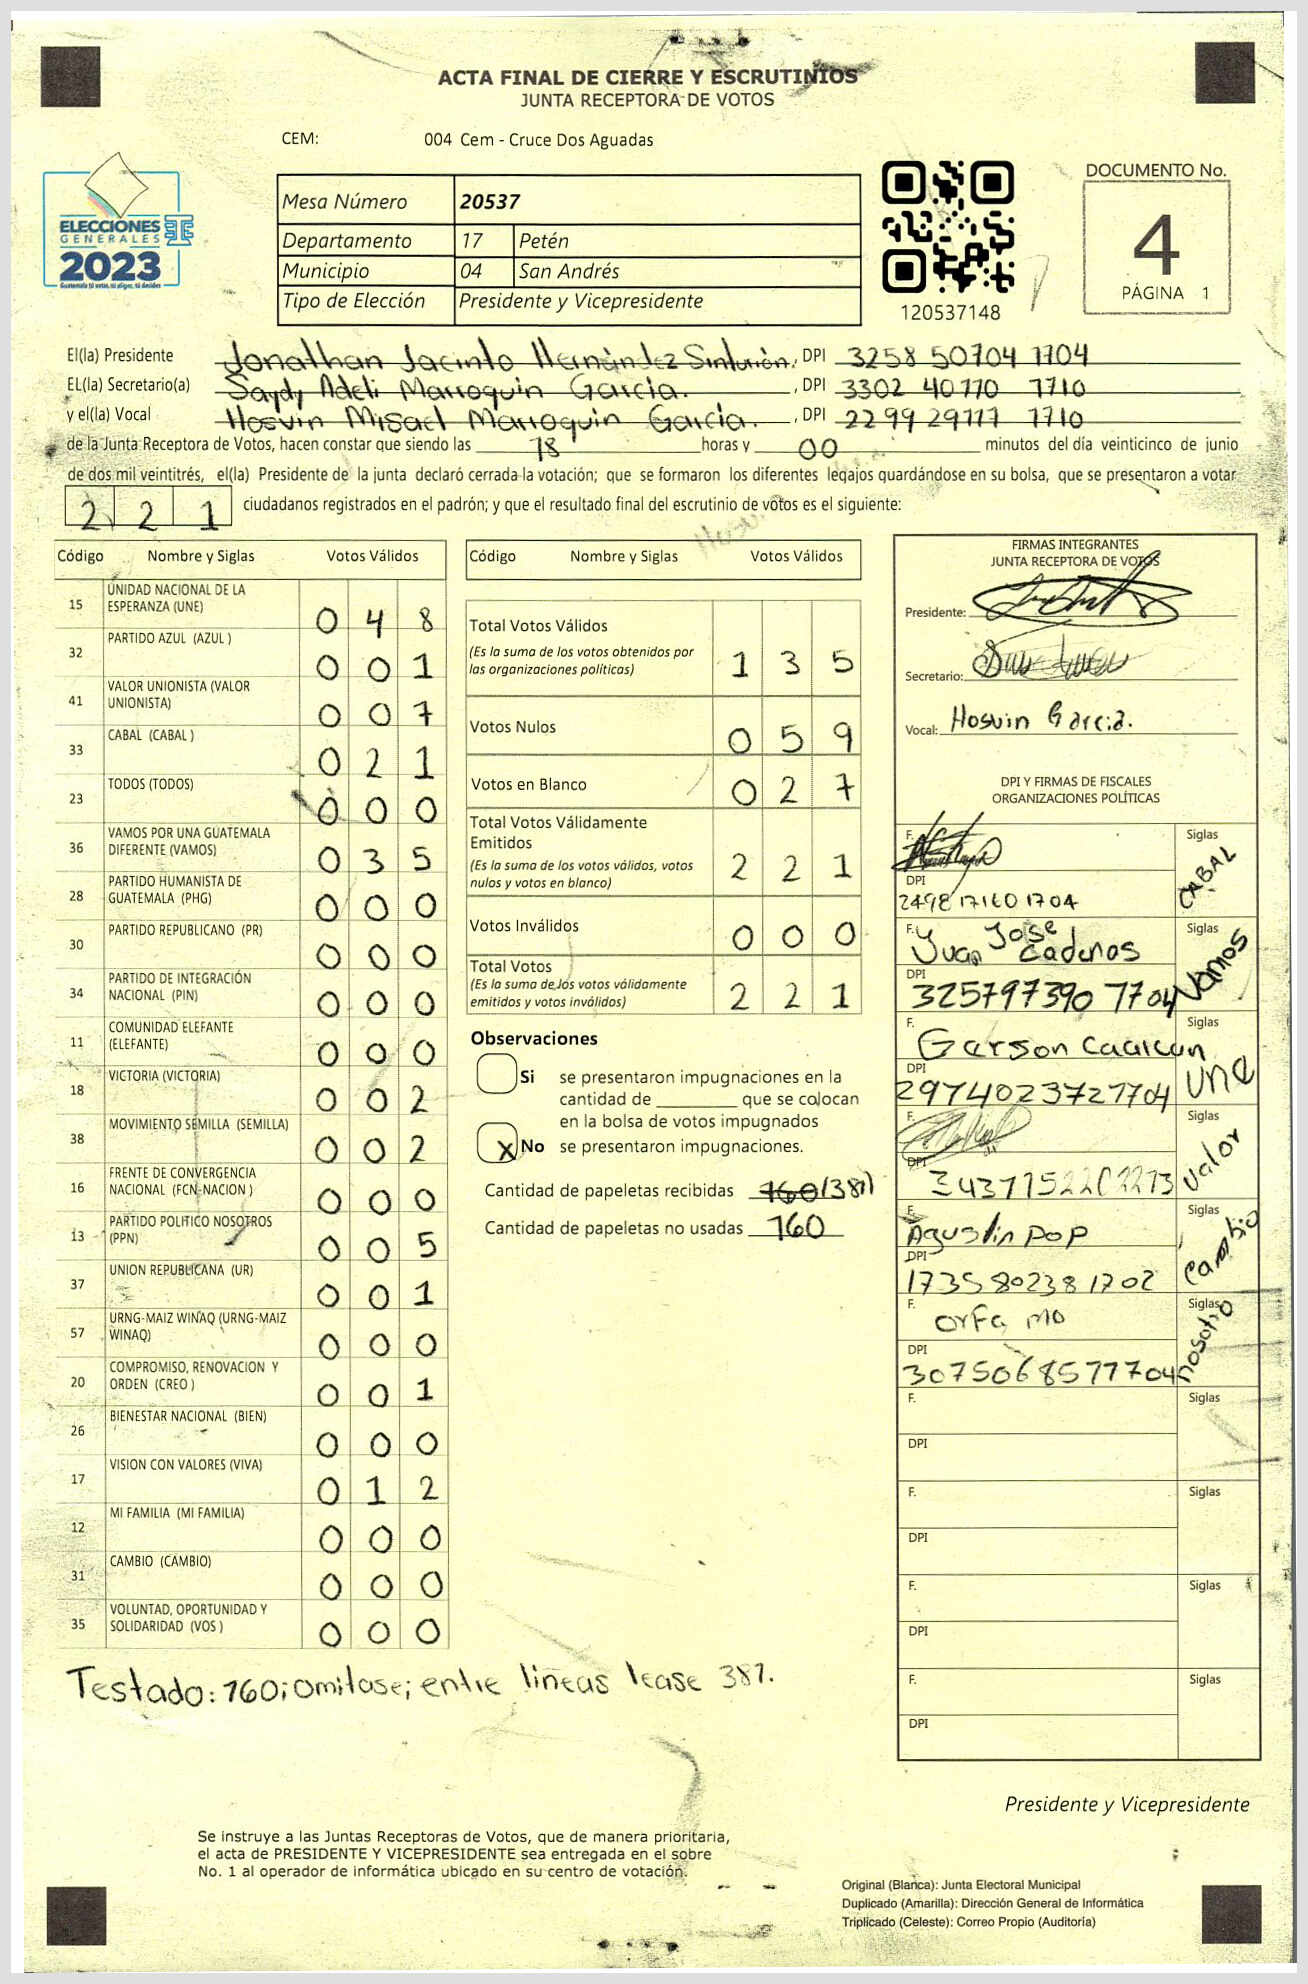 ACTA FINAL DE CIERRE Y ESCRUTINIOS
JUNTA RECEPTORA DE VOTOS
CEM: 004 Cem - Cruce Dos Aguadas
ELECCIONES
GENERALES
2023
Guatemala tú votas, tú eliges, tú decides
Mesa Número 20537
Departamento 17 Petén
Municipio 04 San Andrés
Tipo de Elección Presidente y Vicepresidente
120537148
DOCUMENTO No.
4
PÁGINA 1
El(la) Presidente Jonathan Jacinto Hernández, DPI 3258 50704 1704
EL(la) Secretario(a) Saydy Adeli Marroquin Garcia., DPI 3302 40770 1710
y el(la) Vocal Hosvin Misael Marroquin Garcia., DPI 2299 29777 1710
de la Junta Receptora de Votos, hacen constar que siendo las 18 horas y 00 minutos del día veinticinco de junio
de dos mil veintitrés, el(la) Presidente de la junta declaró cerrada la votación; que se formaron los diferentes legajos guardándose en su bolsa, que se presentaron a votar
221 ciudadanos registrados en el padrón; y que el resultado final del escrutinio de votos es el siguiente:
Código Nombre y Siglas Votos Válidos
15 UNIDAD NACIONAL DE LA ESPERANZA (UNE) 0 4 8
32 PARTIDO AZUL (AZUL ) 0 0 1
41 VALOR UNIONISTA (VALOR UNIONISTA) 0 0 7
33 CABAL (CABAL ) 0 2 1
23 TODOS (TODOS) 0 0 0
36 VAMOS POR UNA GUATEMALA DIFERENTE (VAMOS) 0 3 5
28 PARTIDO HUMANISTA DE GUATEMALA (PHG) 0 0 0
30 PARTIDO REPUBLICANO (PR) 0 0 0
34 PARTIDO DE INTEGRACIÓN NACIONAL (PIN) 0 0 0
11 COMUNIDAD ELEFANTE (ELEFANTE) 0 0 0
18 VICTORIA (VICTORIA) 0 0 2
38 MOVIMIENTO SEMILLA (SEMILLA) 0 0 2
16 FRENTE DE CONVERGENCIA NACIONAL (FCN-NACION ) 0 0 0
13 PARTIDO POLITICO NOSOTROS (PPN) 0 0 5
37 UNION REPUBLICANA (UR) 0 0 1
57 URNG-MAIZ WINAQ (URNG-MAIZ WINAQ) 0 0 0
20 COMPROMISO, RENOVACION Y ORDEN (CREO ) 0 0 1
26 BIENESTAR NACIONAL (BIEN) 0 0 0
17 VISION CON VALORES (VIVA) 0 1 2
12 MI FAMILIA (MI FAMILIA) 0 0 0
31 CAMBIO (CAMBIO) 0 0 0
35 VOLUNTAD, OPORTUNIDAD Y SOLIDARIDAD (VOS ) 0 0 0
Testado: 160; omitase; entre lineas lease 381.
Código Nombre y Siglas Votos Válidos
Total Votos Válidos
(Es la suma de los votos obtenidos por
las organizaciones políticas) 1 3 5
Votos Nulos 0 5 9
Votos en Blanco 0 2 7
Total Votos Válidamente
Emitidos
(Es la suma de los votos válidos, votos
nulos y votos en blanco) 2 2 1
Votos Inválidos 0 0 0
Total Votos
(Es la suma de los votos válidamente
emitidos y votos inválidos) 2 2 1
Observaciones
Si se presentaron impugnaciones en la
cantidad de ________ que se colocan
en la bolsa de votos impugnados
X No se presentaron impugnaciones.
Cantidad de papeletas recibidas 160 /381/
Cantidad de papeletas no usadas 160
FIRMAS INTEGRANTES
JUNTA RECEPTORA DE VOTOS
Presidente:
Secretario:
Vocal: Hosvin Garcia.
DPI Y FIRMAS DE FISCALES
ORGANIZACIONES POLÍTICAS
F. Siglas CABAL
DPI
2498 17160 1704
F. Juan Jose Cadenas Siglas Vamos
DPI
325797390 1704
F. Gerson Caalcun Siglas UNE
DPI
2974023721704
F. Siglas Valor
DPI
F. Agustin Pop Siglas Cambio
DPI
1735802381702
F. Orfa mo Siglas nosotro
DPI
3075068571704
F. Siglas
DPI
F. Siglas
DPI
F. Siglas
DPI
F. Siglas
DPI
Presidente y Vicepresidente
Se instruye a las Juntas Receptoras de Votos, que de manera prioritaria,
el acta de PRESIDENTE Y VICEPRESIDENTE sea entregada en el sobre
No. 1 al operador de informática ubicado en su centro de votación.
Original (Blanca): Junta Electoral Municipal
Duplicado (Amarilla): Dirección General de Informática
Triplicado (Celeste): Correo Propio (Auditoría)